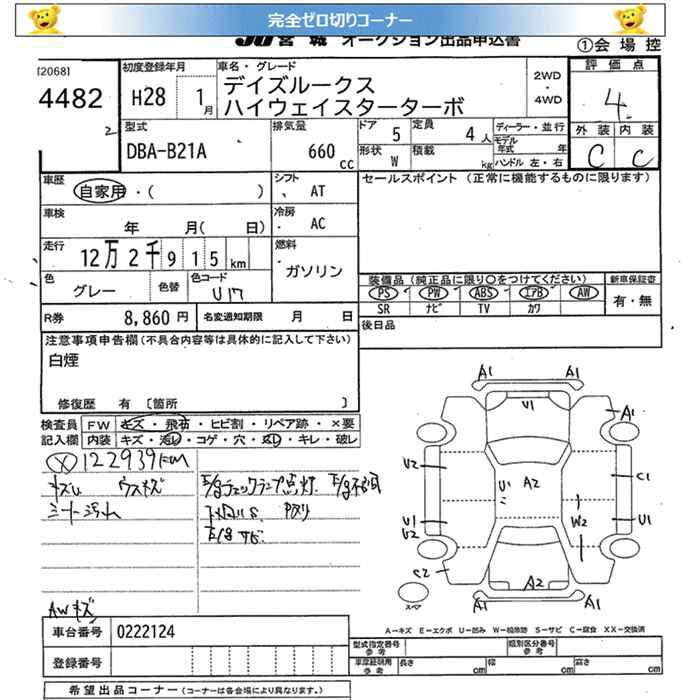 完全ゼロ切りコーナー
JU宮城 オークション出品申込書
①会場控
[2068]
4482
2
初度登録年月
H28 1月
車名・グレード
デイズルークス
ハイウェイスターターボ
2WD
・
4WD
評価点
4
型式
DBA-B21A
排気量
660 cc
ドア 5
定員 4人
形状 W
積載 kg
ディーラー・並行
モデル年式 年
ハンドル 左・右
外装 内装
C C
車歴
自家用・( )
シフト
AT
セールスポイント (正常に機能するものに限ります)
車検
年 月( 日)
冷房
AC
走行
12万2千915km
燃料
ガソリン
色
グレー
色替
色コード
U17
装備品 (純正品に限り○をつけてください)
PS PW ABS エアB AW
SR ナビ TV カワ
新車保証書
有・無
R券 8,860円
名変通知期限 月 日
後日品
注意事項申告欄(不具合内容等は具体的に記入して下さい)
白煙
修復歴 有 [箇所 ]
検査員 FW キズ・飛石・ヒビ割・リペア跡・×要
記入欄 内装 キズ・汚レ・コゲ・穴・
・キレ・破レ
122939km
ウスキズ
シート汚れ
E/gチェックランプ点灯
AWキズ
車台番号 0222124
登録番号
希望出品コーナー (コーナーは各会場により異なります。)
A1 A1
U1
A1
U2
U1
A2
C1
U1
U2
W2
U1
C2
A2
スペア
A1 A1
A－キズ E－エクボ U－凹み W－補修跡 S－サビ C－腐食 XX－交換済
型式指定番号
参考
類別区分番号
参考
車庫証明用
参考
長さ cm
幅 cm
高さ cm